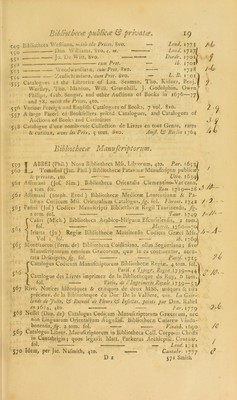 Bibliothecæ publicæ & privatæ. 19
549 Bibliotheca Westiana, with the Prices, 8vo. Lond. 1773
550 Dan. Williams, 8vo. Lond. 1727
551 Jo. De Witt, 8vo. Dordr. 1701
552 cum Pret. ib. 1701
553 Woodhousiana, cum Pret. 8vo.
554 cum Pret. 8vo. L. B.
555 Catalogues of the Libraries of Laz. Seaman, Tho. Kidner, Benj. Worsley, Tho. Manton, Will. Greenhill, J. Godolphin, Owen, Philips, Gab. Sangar, and other Auctions of Books in 1676-77 and 78, with the Prices, 4to.
556 Various French and English Catalogues of Books, 7 vol. 8vo.
557 A large Parcel of Booksellers priced Catalogues, and Catalogues of Auctions of Books and Curiosities
558 Catalogue d'une nombreuse Collection de Livres en tout Genre, rares & curieux, avec les Prix, 3 tom. 8vo. Amst. & Berlin 1764
Bibliothecæ Manuscriptorum.
559 ABBEI (Phil.) Nova Bibliotheca MS. Librorum, 4to. Par. 1653
560 Tomasini (Jac. Phil.) Bibliothecæ Patavinæ Manuscriptæ publicæ & privatæ, 4to. Utin. 1639
561 Assemani (Jos. Sim.) Bibliotheca Orientalis Clementino-Vaticana, 4 tom. fol. Rom. 1719-28
562 Assemani (Steph. Evod.) Bibliothecæ Mediceæ Laurentianæ & Palatinæ Codicum MSS. Orientalium Catalogus, fig. fol. Florent. 1742
563 Pasini (Jos.) Codices Manuscripti Bibliothecæ Regii Taurinensis, fig. 2 tom. fol. Taur. 1749
Casiri (Mich.) Bibliotheca Arabico-Hispana Escurialensis, 2 tom. fol. Matriti, 1760-70
564 Iriarte (Jo.) Regiæ Bibliothecæ Matritensis Codices Græci MSS. Vol. 1. fol. ib. 1769
565 Montfaucon (Bern. de) Bibliotheca Coisliniana, olim Segueriana; sive Manuscriptorum omnium Græcorum, quæ in ea continentur, accurata Descriptio, fig. fol. Par. 1715
566 Catalogus Codicum Manuscriptorum Bibliothecæ Regiæ, 4 tom. fol. Paris. e Typogr. Regia 1739-44
Catalogue des Livres imprimés de la Bibliotheque du Roy, 6 tom. fol. Paris, de l'Imprimerie Royale 1739-53
567 Rive, Notices historiques & critiques de deux MSS. uniques & très précieux, de la Bibliotheque du Duc De la Valliere, viz. La Guirlande de Julie, & Recueil de Fleurs & Insectes, peints par Dan. Rabel in 1624, 4to. Par. 1779
568 Nessel (Dan. de) Catalogus Codicum Manuscriptorum Græcorum, nec non Linguarum Orientalium Augustiss. Bibliothecæ Cæsareæ Vindobonensis, fig. 2 tom. fol. Vindob. 1690
569 Catalogus Librorum Manuscriptorum in Bibliotheca Coll. Corporis Christi in Cantabrigia; quos legavit Matt. Parkerus Archiepisc. Cantuar. fol. Lond. 1722
570 Idem, per Jac. Nasmith, 4to. Cantabr. 1777
D 2
571 Smith